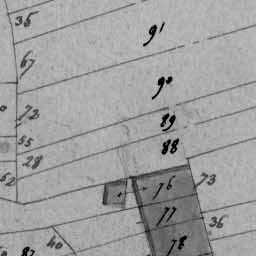 36
91
67
90
72
89
55
88
28
52
76
73
77
36
40
78